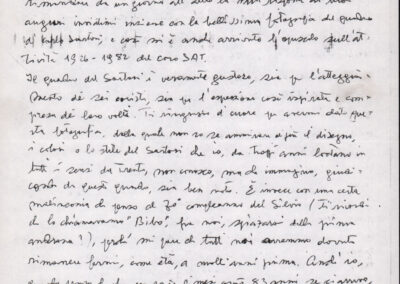 rimandata di un giorno all'altro la mia risposta ai tuoi
auguri graditissimi insieme con la bellissima fotografia del quadro
di Sartori, e così mi è anche arrivato l'opuscolo sull'at
tività 1926-1982 del coro SAT.
Il quadro del Sartori è veramente gustoso, sia per l'atteggia
mento dei sei coristi, sia per l'espressione così ispirata e com
presa dei loro volti. Ti ringrazio di cuore per avermi dato que
sta fotografia, dalla quale non so se ammirare di più il disegno,
i colori o lo stile del Sartori che io, da troppi anni lontano in
tutti i sensi da Trento, non conosco, ma che immagino, giudi
cando da questo quadro, sia ben noto. È invece con una certa
malinconia che penso al compleanno del Silvio (Ti ricordi
che lo chiamavamo "Bibo", fra noi, della prima
?), perché mi pare che tutti noi avremmo dovuto
rimanere fermi, come età, a molti anni prima. Anch'io,
83 anni